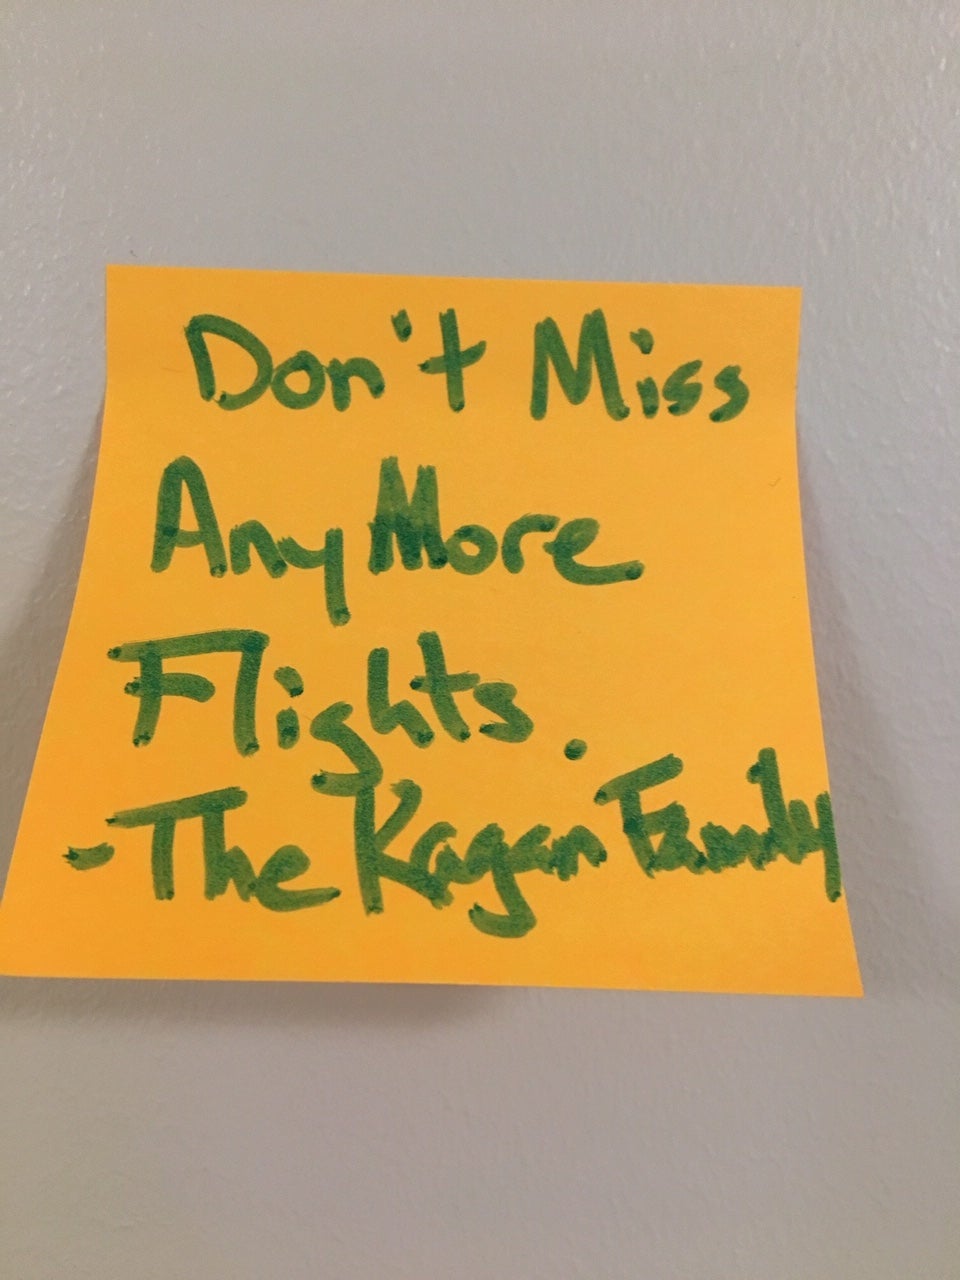 Don't Miss
AnyMore
Flights.
-The Kagan Family